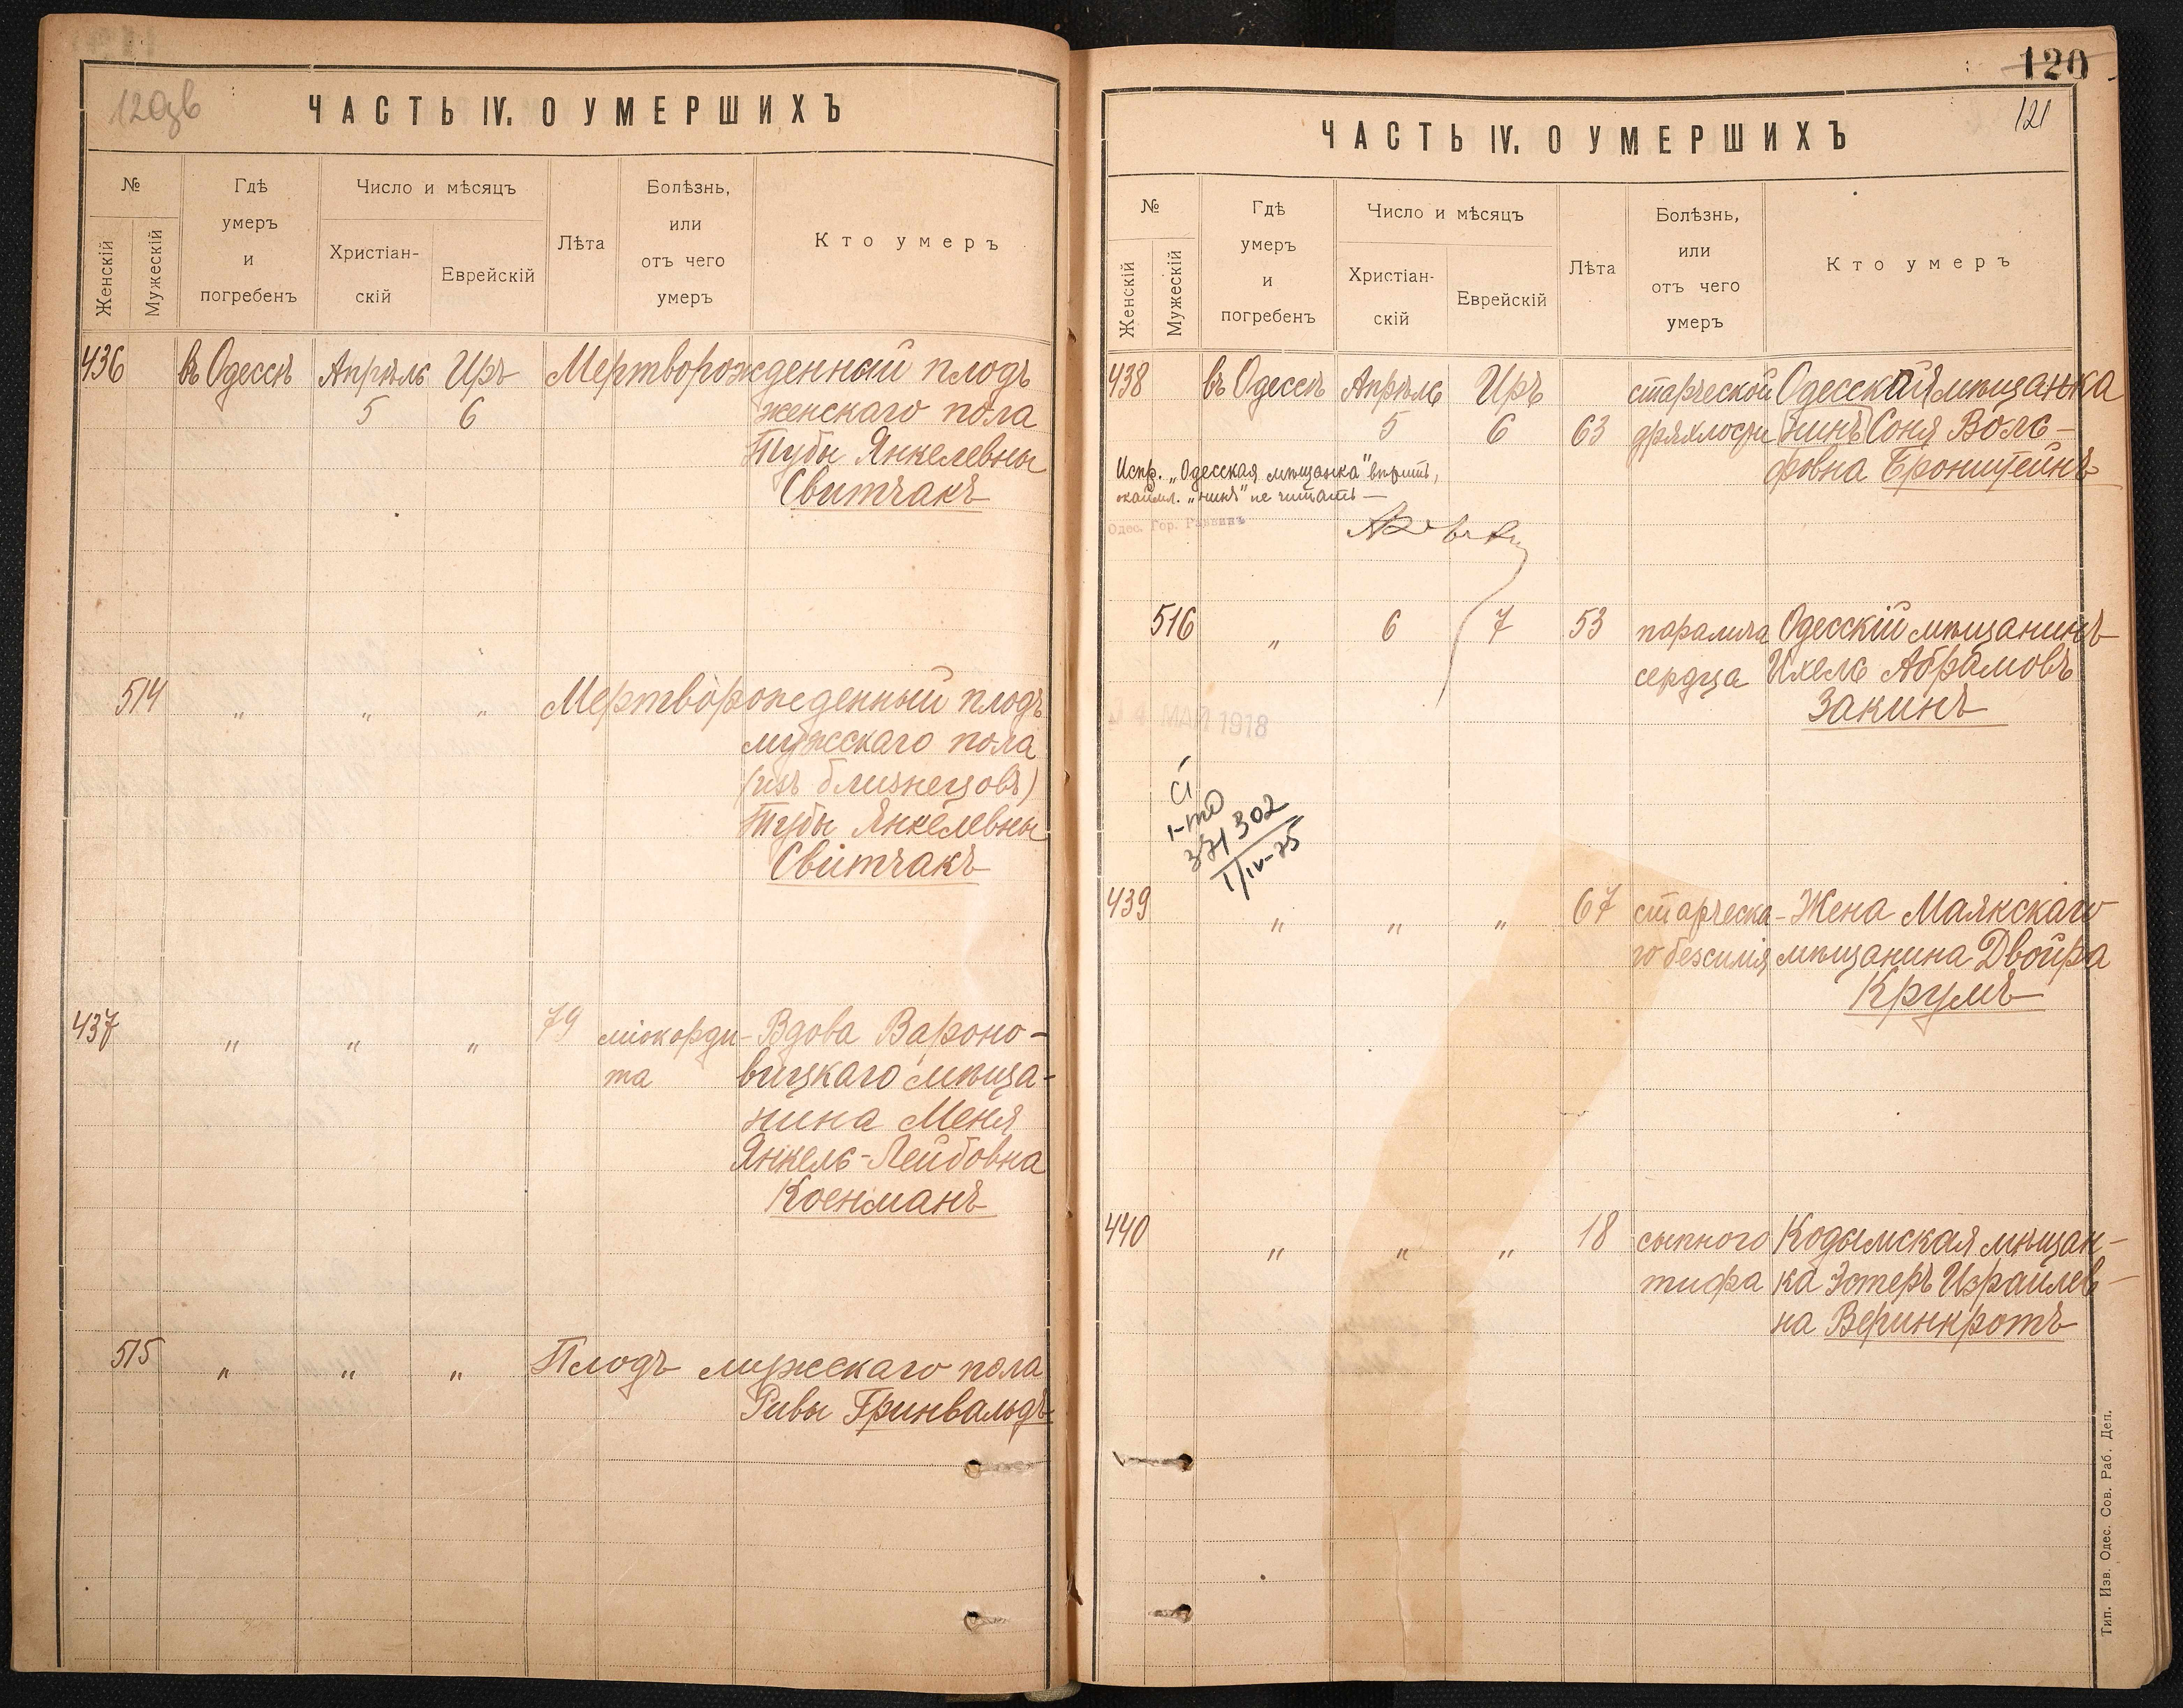 120зв
ЧАСТЬ IV. О УМЕРШИХЪ
№
Женскій
Мужескій
Гдѣ
умеръ
и
погребенъ
Число и мѣсяцъ
Христіан-
скій
Еврейскій
Лѣта
Болѣзнь,
или
отъ чего
умеръ
Кто умеръ
436 въ Одессѣ Апрѣль Иръ Мертворожденный плодъ
5 6 женскаго пола
Тубы Янкелевны
Свитчакъ
514 „ „ „ Мертворожденный плодъ
мужскаго пола
(изъ близнецовъ)
Тубы Янкелевны
Свитчакъ
437 „ „ „ 79 міокарди- Вдова Вароно-
та вицкаго мѣща-
нина Меня
Янкель-Лейбовна
Коенманъ
515 „ „ „ Плодъ мужскаго пола
Ривы Гринвальдъ
120
121
ЧАСТЬ IV. О УМЕРШИХЪ
№
Женскій
Мужескій
Гдѣ
умеръ
и
погребенъ
Число и мѣсяцъ
Христіан-
скій
Еврейскій
Лѣта
Болѣзнь,
или
отъ чего
умеръ
Кто умеръ
438 въ Одессѣ Апрѣль Иръ старческой Одесская мѣщанка
5 6 63 дряхлости нинъ Соня Воль-
фовна Бронштейнъ
Испр. „Одесская мѣщанка" вѣрить,
окаймл. „нинъ" не читать —
Одес. Гор. Раввинъ
516 „ 6 7 53 паралича Одесскій мѣщанинъ
сердца Ихель Абрамовъ
Закинъ
МАЙ 1918
371302
1/IV-75
439 „ „ „ 67 старческа- Жена Маякскаго
го безсилія мѣщанина Двойра
Крумъ
440 „ „ „ 18 сыпного Кодымская мѣщан-
тифа ка Эстеръ Израилев-
на Веринкротъ
Тип. Изв. Одес. Сов. Раб. Деп.